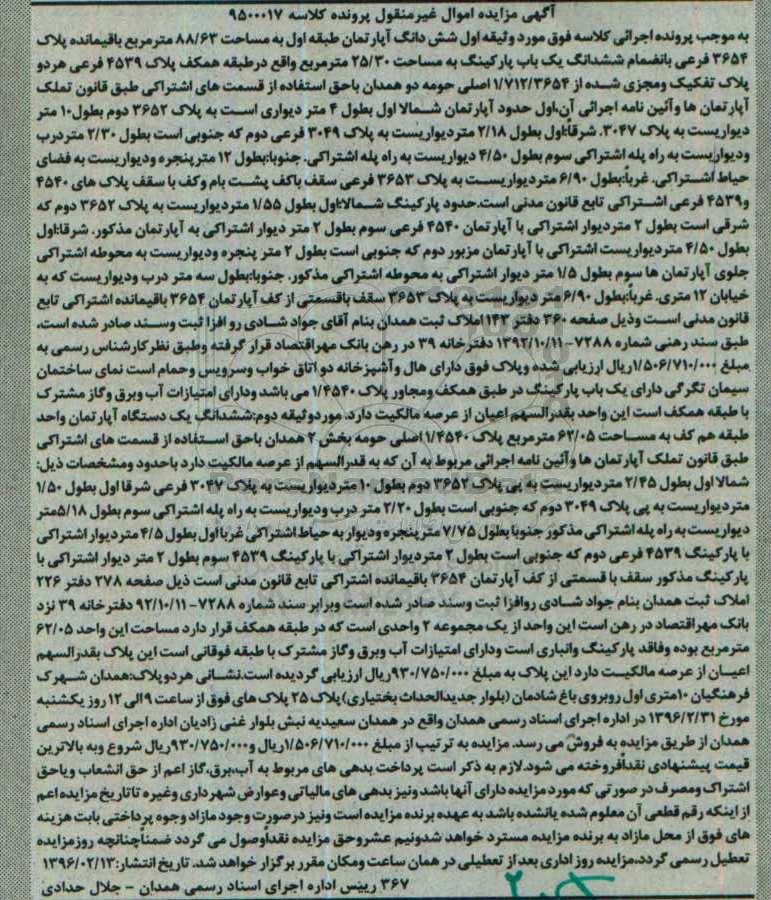 آگهی مزایده اموال غیرمنقول پرونده کلاسه ۹۵۰۰۰۱۷
به موجب پرونده اجرائی کلاسه فوق مورد وثیقه اول شش دانگ آپارتمان طبقه اول به مساحت ۸۸/۶۳ مترمربع باقیمانده پلاک
۳۶۵۴ فرعی بانضمام ششدانگ یک باب پارکینگ به مساحت ۲۵/۳۰ مترمربع واقع درطبقه همکف پلاک ۴۵۳۹ فرعی هردو
پلاک تفکیک ومجزی شده از ۱/۷۱۲/۳۶۵۴ اصلی حومه دو همدان باحق استفاده از قسمت های اشتراکی طبق قانون تملک
آپارتمان ها وآئین نامه اجرائی آن،اول حدود آپارتمان شمالا اول بطول ۴ متر دیواری است به پلاک ۳۶۵۲ دوم بطول۱۰ متر
دیواریست به پلاک ۳۰۴۷. شرقاً:اول بطول ۲/۱۸ متردیواریست به پلاک ۳۰۴۹ فرعی دوم که جنوبی است بطول ۲/۳۰ متردرب
ودیواریست به راه پله اشتراکی سوم بطول ۴/۵۰ دیواریست به راه پله اشتراکی. جنوبا:بطول ۱۲ مترپنجره ودیواریست به فضای
حیاط اشتراکی. غرباً:بطول ۶/۹۰ متردیواریست به پلاک ۳۶۵۳ فرعی سقف باکف پشت بام وکف با سقف پلاک های ۴۵۴۰
و۴۵۳۹ فرعی اشتراکی تابع قانون مدنی است.حدود پارکینگ شمالا:اول بطول ۱/۵۵ متردیواریست به پلاک ۳۶۵۲ دوم که
شرقی است بطول ۲ متردیوار اشتراکی با آپارتمان ۴۵۴۰ فرعی سوم بطول ۲ متر دیوار اشتراکی به آپارتمان مذکور. شرقا:اول
بطول ۴/۵۰ متردیواریست اشتراکی با آپارتمان مزبور دوم که جنوبی است بطول ۲ متر پنجره ودیواریست به محوطه اشتراکی
جلوی آپارتمان ها سوم بطول ۱/۵ متر دیوار اشتراکی به محوطه اشتراکی مذکور. جنوبا:بطول سه متر درب ودیواریست که به
خیابان ۱۲ متری. غرباً:بطول ۶/۹۰ متر دیواریست به پلاک ۳۶۵۳ سقف باقسمتی از کف آپارتمان ۳۶۵۴ باقیمانده اشتراکی تابع
قانون مدنی است وذیل صفحه ۳۶۰ دفتر ۱۴۳ املاک ثبت همدان بنام آقای جواد شادی رو افزا ثبت وسند صادر شده است.
طبق سند رهنی شماره ۷۲۸۸-۱۳۹۲/۱۰/۱۱ دفترخانه ۳۹ در رهن بانک مهراقتصاد قرار گرفته وطبق نظرکارشناس رسمی به
مبلغ ۱/۵۰۶/۷۱۰/۰۰۰ریال ارزیابی شده وپلاک فوق دارای هال وآشپزخانه دو اتاق خواب وسرویس وحمام است نمای ساختمان
سیمان تگرگی دارای یک باب پارکینگ در طبق همکف ومجاور پلاک ۱/۴۵۴۰ می باشد ودارای امتیازات آب وبرق وگاز مشترک
با طبقه همکف است این واحد بقدرالسهم اعیان از عرصه مالکیت دارد. موردوثیقه دوم:ششدانگ یک دستگاه آپارتمان واحد
طبقه هم کف به مساحت ۶۲/۰۵ مترمربع پلاک ۱/۴۵۴۰ اصلی حومه بخش ۲ همدان باحق استفاده از قسمت های اشتراکی
طبق قانون تملک آپارتمان ها وآئین نامه اجرائی مربوط به آن که به قدرالسهم از عرصه مالکیت دارد باحدود ومشخصات ذیل:
شمالا اول بطول ۲/۴۵ متردیواریست به پی پلاک ۳۶۵۲ دوم بطول ۱۰ متردیواریست به پلاک ۳۰۴۷ فرعی شرقا اول بطول ۱/۵۰
متردیواریست به پی پلاک ۳۰۴۹ دوم که جنوبی است بطول ۲/۲۰ متر درب ودیواریست به راه پله اشتراکی سوم بطول ۵/۱۸متر
دیواریست به راه پله اشتراکی مذکور جنوبا بطول ۷/۷۵ مترپنجره ودیوار به حیاط اشتراکی غربا اول بطول ۴/۵ متردیوار اشتراکی
با پارکینگ ۴۵۳۹ فرعی دوم که جنوبی است بطول ۲ متردیوار اشتراکی با پارکینگ ۴۵۳۹ سوم بطول ۲ متر دیوار اشتراکی با
پارکینگ مذکور سقف با قسمتی از کف آپارتمان ۳۶۵۴ باقیمانده اشتراکی تابع قانون مدنی است ذیل صفحه ۲۷۸ دفتر ۲۲۶
املاک ثبت همدان بنام جواد شادی روافزا ثبت وسند صادر شده است وبرابر سند شماره ۷۲۸۸-۹۲/۱۰/۱۱ دفترخانه ۳۹ نزد
بانک مهراقتصاد در رهن است این واحد از یک مجموعه ۲ واحدی است که در طبقه همکف قرار دارد مساحت این واحد ۶۲/۰۵
مترمربع بوده وفاقد پارکینگ وانباری است ودارای امتیازات آب وبرق وگاز مشترک با طبقه فوقانی است این پلاک بقدرالسهم
اعیان از عرصه مالکیت دارد این پلاک به مبلغ ۹۳۰/۷۵۰/۰۰۰ریال ارزیابی گردیده است.نشانی هردوپلاک:همدان شهرک
فرهنگیان ۱۰متری اول روبروی باغ شادمان (بلوار جدیدالحداث بختیاری) پلاک ۲۵ پلاک های فوق از ساعت ۹ الی ۱۲ روز یکشنبه
مورخ ۱۳۹۶/۲/۳۱ در اداره اجرای اسناد رسمی همدان واقع در همدان سعیدیه نبش بلوار غنی زادیان اداره اجرای اسناد رسمی
همدان از طریق مزایده به فروش می رسد. مزایده به ترتیب از مبلغ ۱/۵۰۶/۷۱۰/۰۰۰ریال و۹۳۰/۷۵۰/۰۰۰ریال شروع وبه بالاترین
قیمت پیشنهادی نقداًفروخته می شود.لازم به ذکر است پرداخت بدهی های مربوط به آب،برق،گاز اعم از حق انشعاب ویاحق
اشتراک ومصرف در صورتی که مورد مزایده دارای آنها باشد ونیز بدهی های مالیاتی وعوارض شهرداری وغیره تاتاریخ مزایده اعم
از اینکه رقم قطعی آن معلوم شده یانشده باشد به عهده برنده مزایده است ونیز درصورت وجود مازاد وجوه پرداختی بابت هزینه
های فوق از محل مازاد به برنده مزایده مسترد خواهد شدونیم عشروحق مزایده نقداًوصول می گردد ضمناًچنانچه روزمزایده
تعطیل رسمی گردد،مزایده روز اداری بعد از تعطیلی در همان ساعت ومکان مقرر برگزار خواهد شد. تاریخ انتشار:۱۳۹۶/۰۲/۱۳
۳۶۷ رییس اداره اجرای اسناد رسمی همدان - جلال حدادی